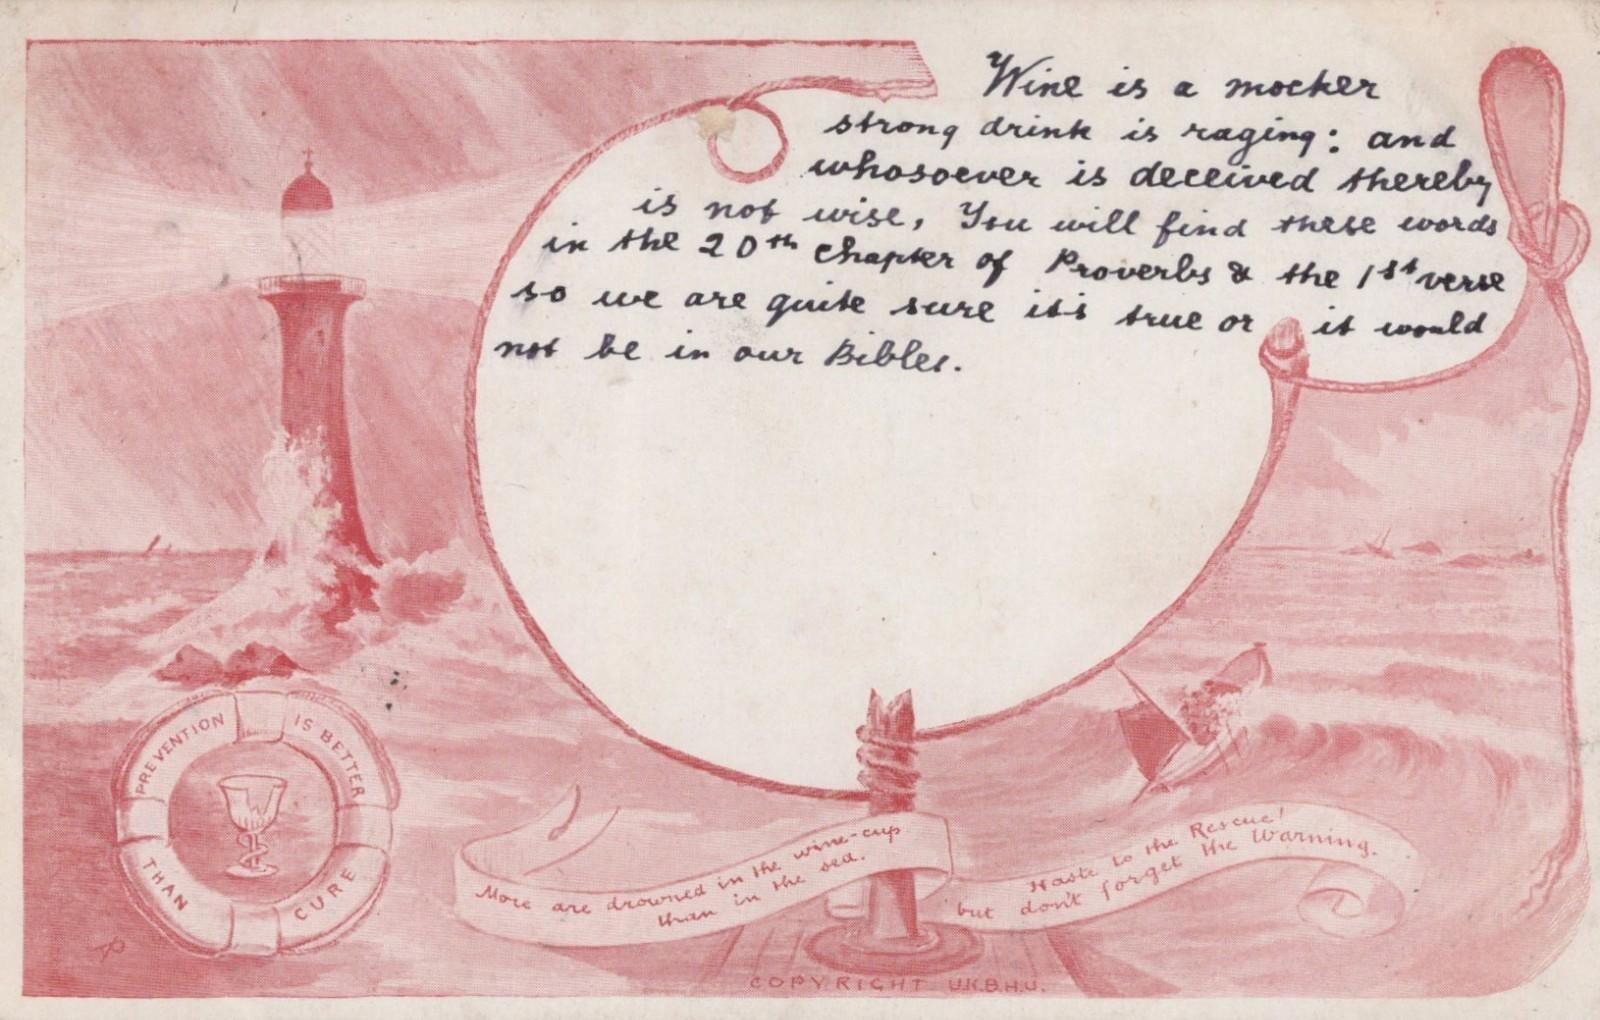 Wine is a mocker
strong drink is raging: and
whosoever is deceived thereby
is not wise, You will find these words
in the 20th Chapter of Proverbs & the 1st verse
so we are quite sure its true or it would
not be in our Bibles.
PREVENTION IS BETTER
THAN CURE
More are drowned in the wine-cup
than in the sea.
Haste to the Rescue!
but don't forget the Warning.
COPYRIGHT U.K.B.H.U.